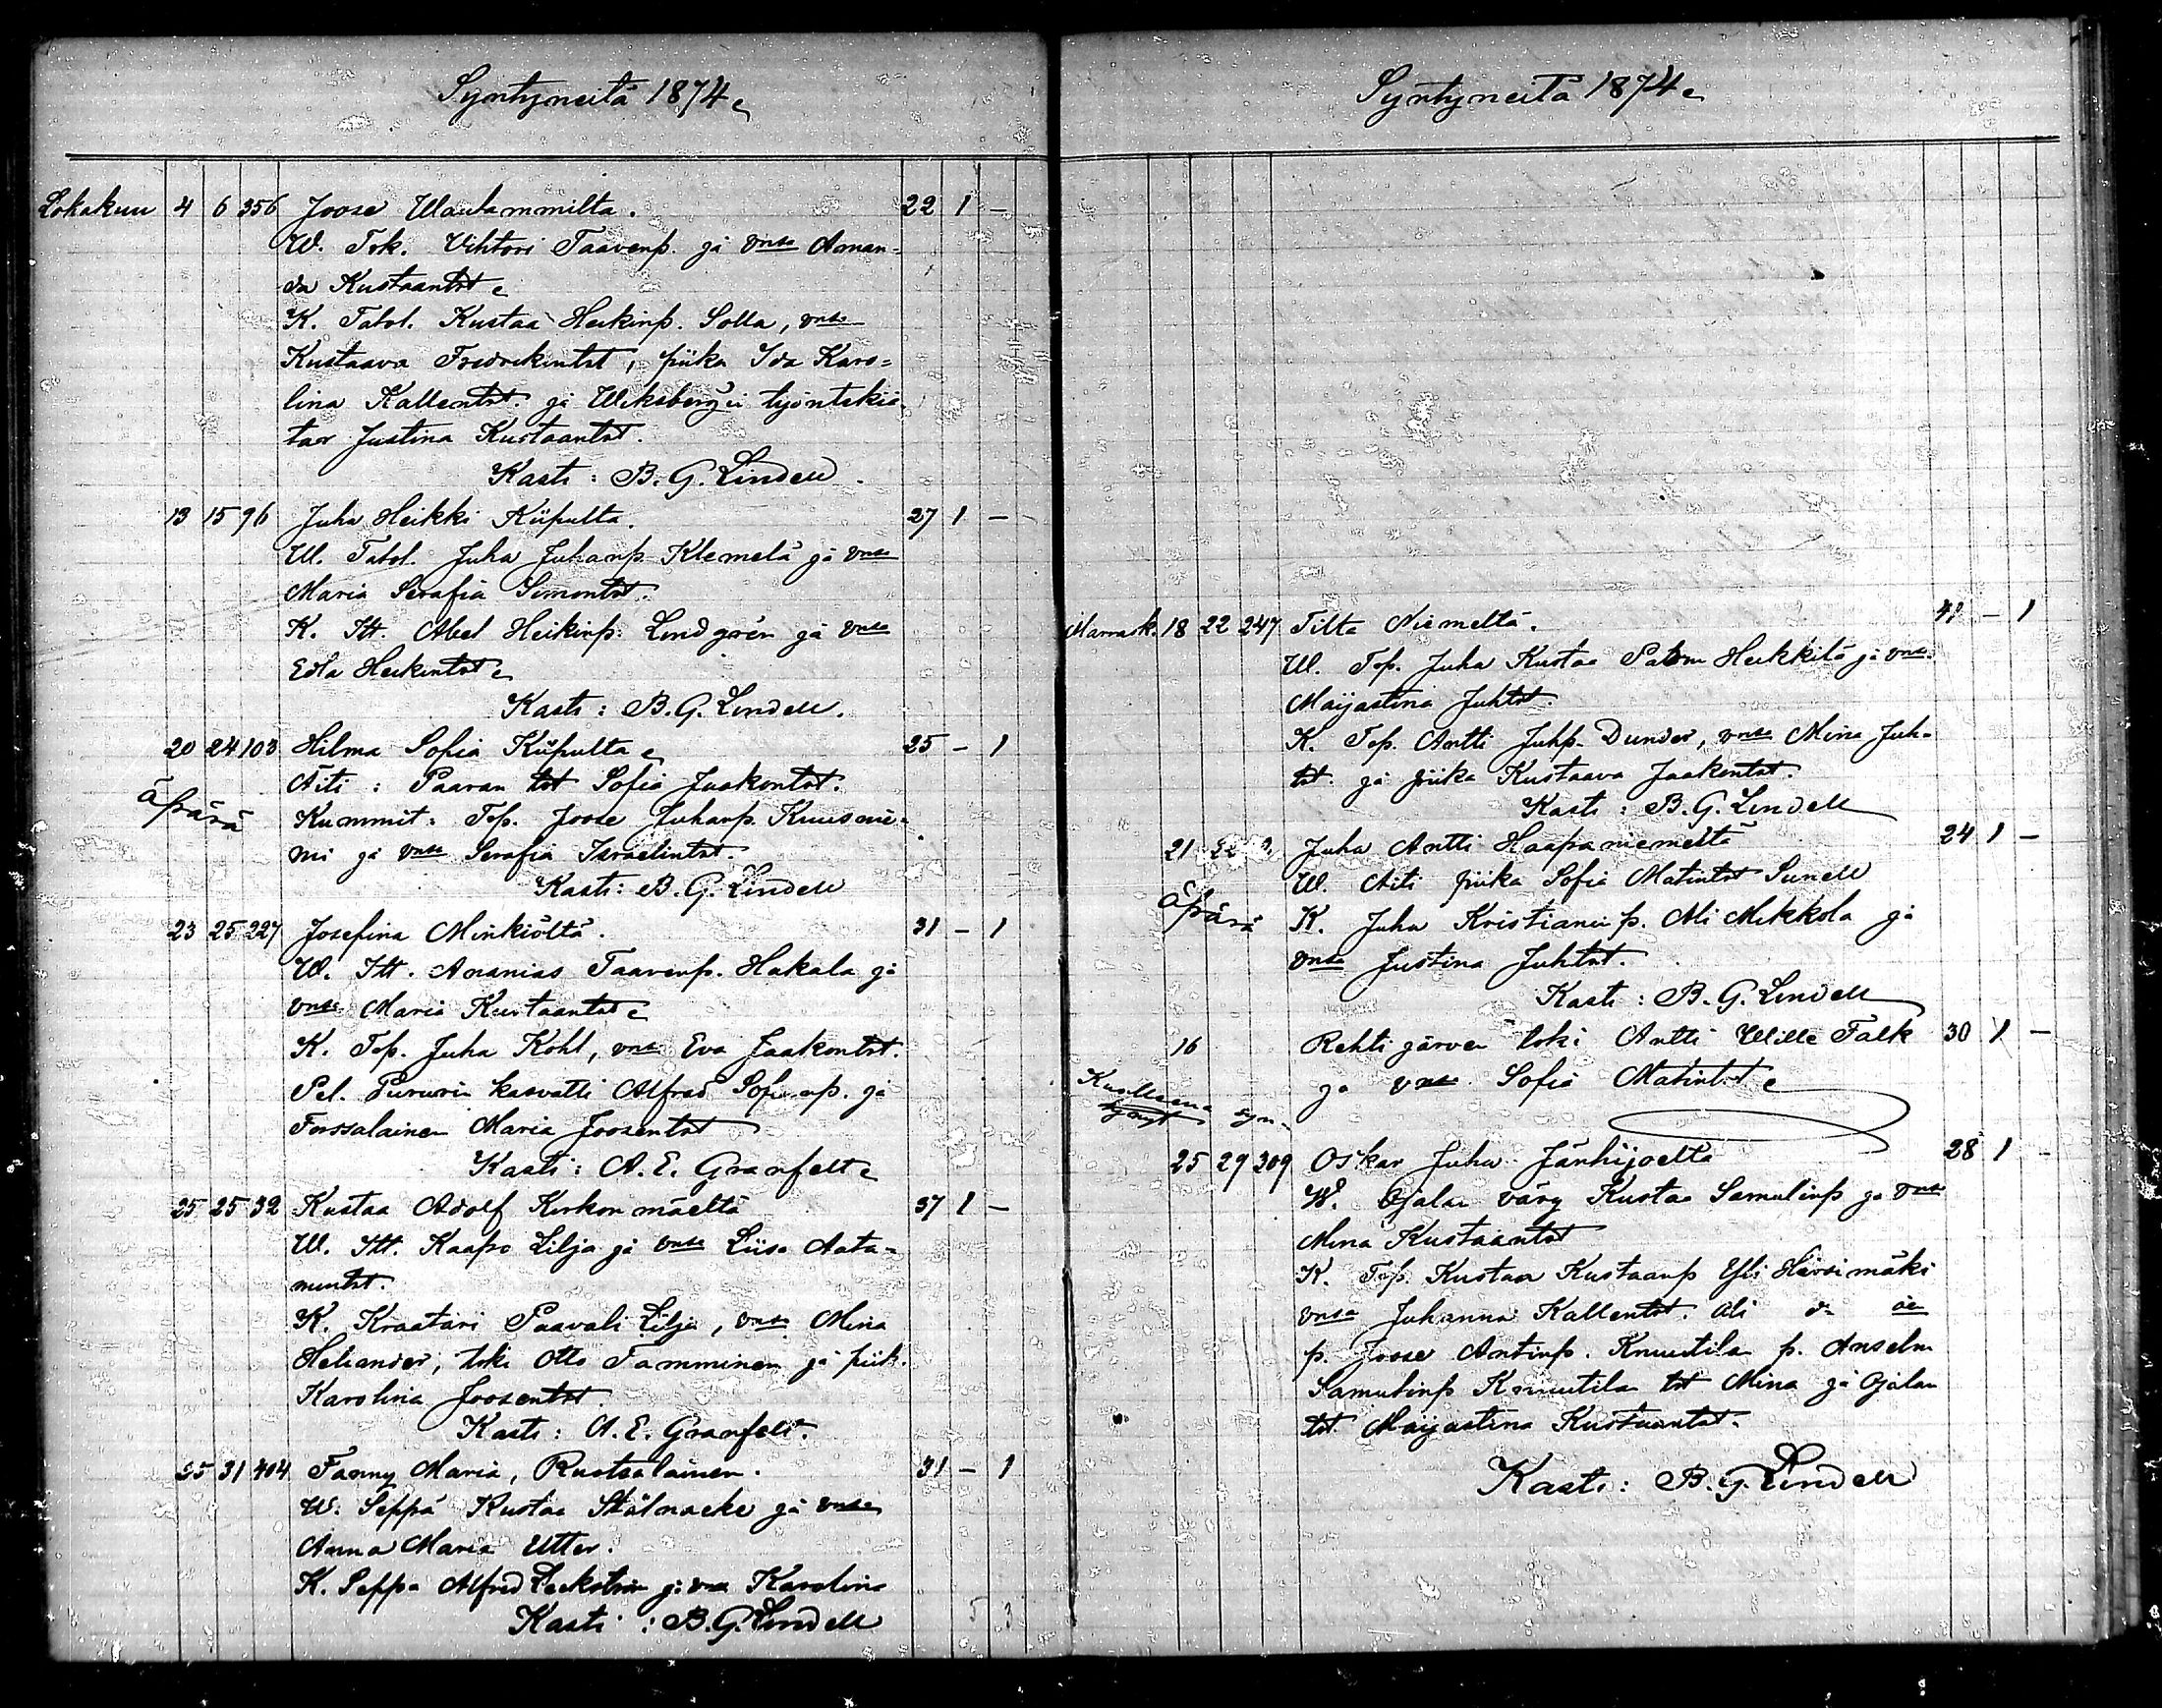 Syntyneitä 1874
Lokakuu 4 6 356 Joose Wautammilta. 22 1 –
W. Tork. Vihtori Taavenp. ja vnsa Aman=
da Kustaantrt
K. Tatol. Kustaa Heikinp. Solla, vnsa
Kustaava Fredrekintrt, piika Ida Karo=
lina Kallentrt. ja Wiksberg'ii työntekiä-
tar Justina Kustaantrt.
Kasti: B. G. Lindell.
13 15 96 Juha Heikki Kiipulta. 27 1 –
W. Tatol. Juha Juhanp. Klemelä ja vnsa
Maria Serafia Simontrt.
K. Itt. Abel Heikinp. Lindgrén ja vnsa
Edla Heikintrt
Kasti: B. G. Lindell.
20 24 103 Hilma Sofia Kiipulta 25 – 1
Äiti: Paavan trt Sofia Jaakontrt.
äpärä Kummit: Top. Joose Juhanp. Kuusnie-
mi ja vnsa Serafia Israelintrt.
Kasti: B. G. Lindell
23 25 227 Josefina Minkiöltä. 31 – 1
W. Itt. Ananias Taavenp. Hakala ja
vnsa Maria Kustaantrt
K. Top. Juha Kohl, vnsa Eva Jaakontrt.
Pel. Pururin kasvatti Alfred p. ja
Forssalainen Maria Joosentrt
Kasti: A. E. Granfelt
25 25 32 Kustaa Adolf Kirkonmäeltä 37 1 –
W. Itt. Kaapo Lilja ja vnsa Liisa Aata-
mintrt.
K. Kraatari Paavali Lilja, vnsa Mina
Helander, loki Otto Tamminen ja piik.
Karolina Joosentrt.
Kasti: A. E. Granfelt.
25 31 404 Fanny Maria, Ruotsalainen. 31 – 1
W. Seppä Kustaa Stålnacke ja vnsa
Anna Maria Utter.
K. Seppä Alfred ja vnsa Karolina
Kasti: B. G. Lindell
5 3
Syntyneitä 1874
Marrask. 18 22 247 Tilta Niemeltä. – 1
W. Top. Juha Kustaa Heikkilä ja vnsa
Maijastina Juhtrt.
K. Top. Antti Juhp. Dunder, vnsa Mina Juh-
trt. ja piika Kustaava Jaakontrt.
Kasti: B. G. Lindell
21 Juha Antti Haapaniemeltä 24 1 –
W. Äiti piika Sofia Matintrt Sunell
äpärä K. Juha Kristianinp. Ali Mikkola ja
vnsa Justina Juhtrt.
Kasti: B. G. Lindell
16 Rehtijärven loki Antti Wille Falk 30 1 –
Kuolleena syn. ja vnsa Sofia Matintrt
25 29 309 Oskar Juha Jänhijoelta 28 1 –
W. Ojalan väry Kustaa Samulinp. ja vnsa
Mina Kustaantrt
K. Top. Kustaa Kustaanp Yli Hirsimäki
vnsa Johanna Kallentrt. Ali
p. Joose Antinp. Knuutila p. Anselm
Samulinp Knuutila trt Mina ja Ojalan
trt. Maijastina Kustaantrt.
Kasti: B. G. Lindell